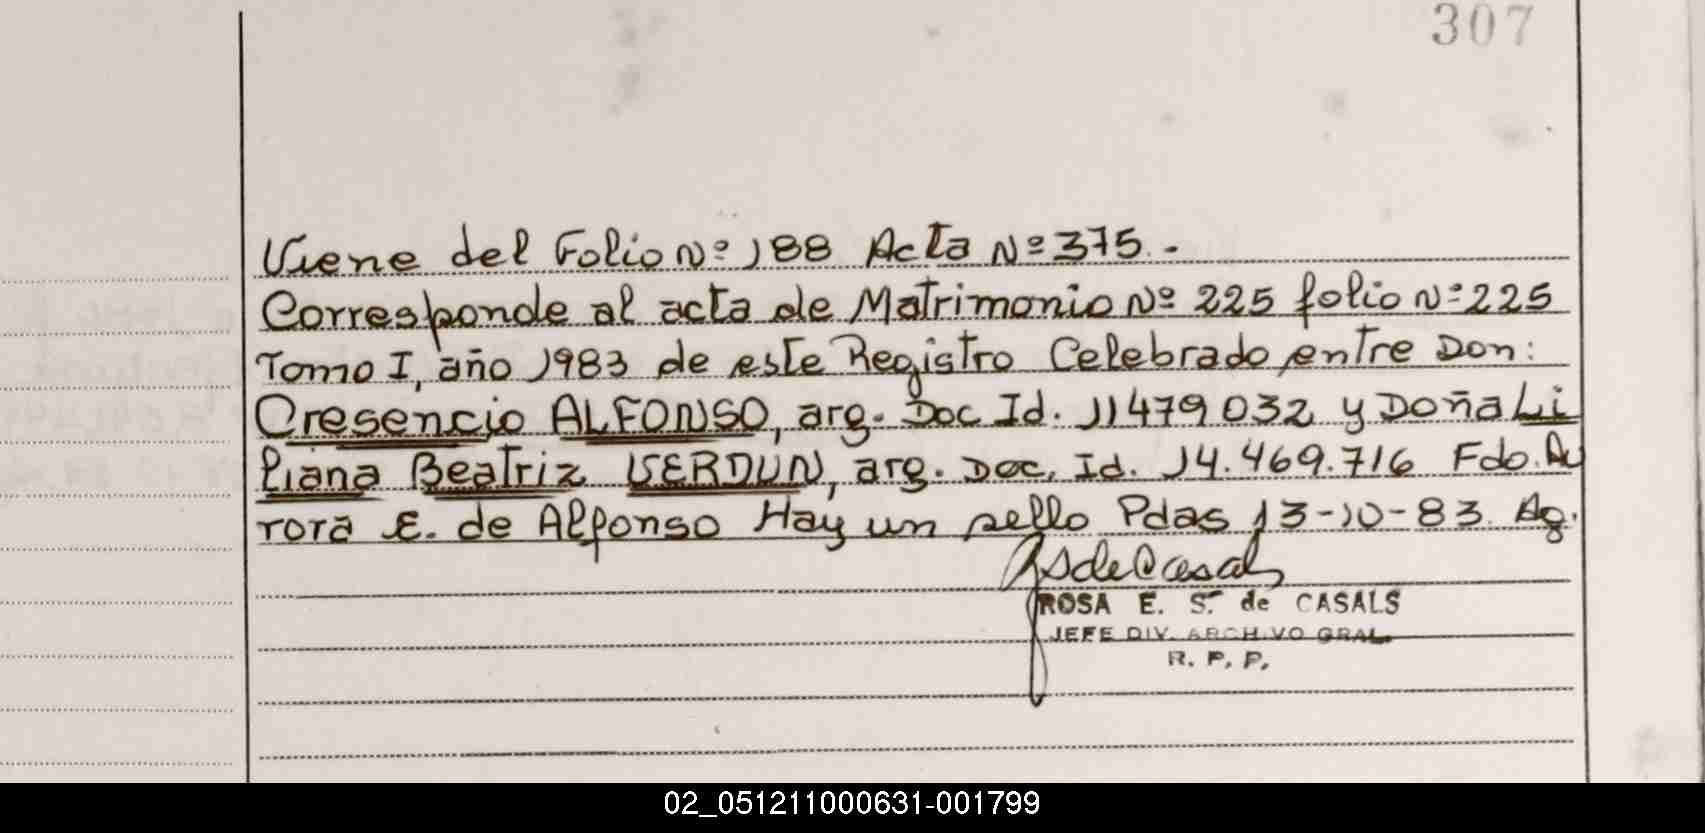 307
Viene del Folio Nº 188 Acta Nº 375.-
Corresponde al acta de Matrimonio Nº 225 folio Nº 225
Tomo I, año 1983 de este Registro Celebrado entre Don:
Cresencio ALFONSO, arg. Doc Id. 11479032 y Doña Li
liana Beatriz VERDUN, arg. Doc. Id. 14.469.716 Fdo. Au
rora E. de Alfonso Hay un sello Pdas 13-10-83. Ag.
RSdeCasals
ROSA E. S. de CASALS
JEFE DIV. ARCHIVO GRAL.
R. P. P.
02_051211000631-001799